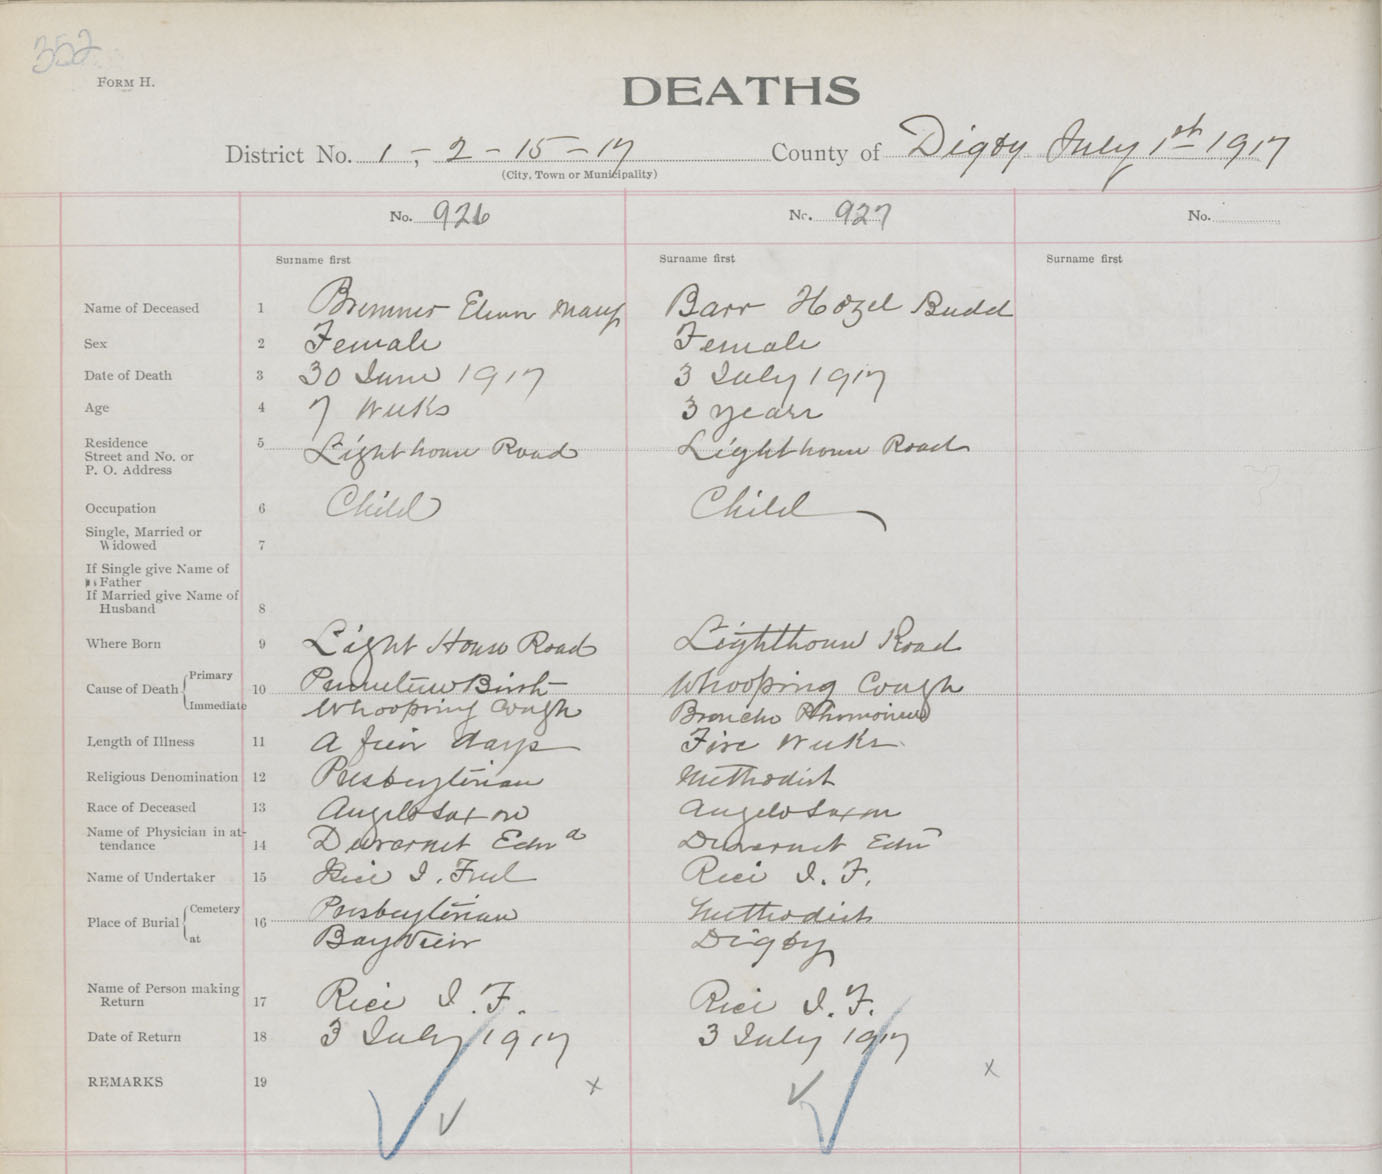 352
FORM H.
DEATHS
District No. 1, - 2 - 15 - 17 County of Digby July 1st 1917
(City, Town or Municipality)
No. 926 No. 927 No.
Surname first Surname first Surname first
Name of Deceased 1 Bremner Elinor Mary Barr Hazel Budd
Sex 2 Female Female
Date of Death 3 30 June 1917 3 July 1917
Age 4 7 Weeks 3 years
Residence Street and No. or P. O. Address 5 Lighthouse Road Lighthouse Road
Occupation 6 Child Child
Single, Married or Widowed 7
If Single give Name of Father
If Married give Name of Husband 8
Where Born 9 Light House Road Lighthouse Road
Cause of Death Primary 10 Premature Birth Whooping Cough
Immediate Whooping Cough Broncho
Length of Illness 11 A few days Five Weeks
Religious Denomination 12 Presbyterian Methodist
Race of Deceased 13 Anglosaxon Anglosaxon
Name of Physician in attendance 14 Duvernet Edwd Duvernet Edw
Name of Undertaker 15 Rice I. Fred Rice I. F.
Place of Burial Cemetery 16 Presbyterian Methodist
at Bayview Digby
Name of Person making Return 17 Rice I. F. Rice I. F.
Date of Return 18 3 July 1917 3 July 1917
REMARKS 19 x x